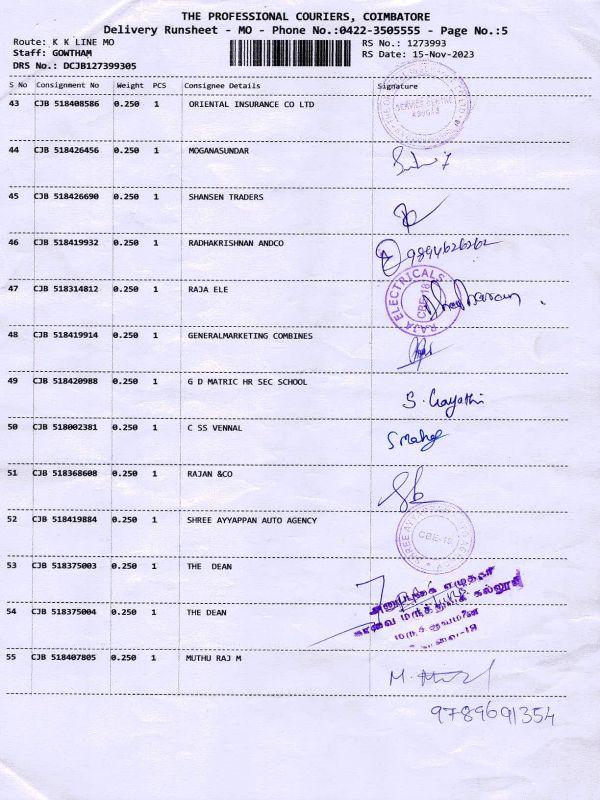 THE PROFESSIONAL COURIERS, COIMBATORE
Delivery Runsheet - MO - Phone No.:0422-3505555 - Page No.:5
Route: K K LINE MO
RS No.: 1273993
Staff: GOWTHAM
RS Date: 15-Nov-2023
DRS No.: DCJB127399305
S No Consignment No Weight PCS Consignee Details Signature
43 CJB 518408586 0.250 1 ORIENTAL INSURANCE CO LTD
44 CJB 518426456 0.250 1 MOGANASUNDAR
45 CJB 518426690 0.250 1 SHANSEN TRADERS
46 CJB 518419932 0.250 1 RADHAKRISHNAN ANDCO
9894626262
47 CJB 518314812 0.250 1 RAJA ELE
RAJA ELECTRICALS
CBE-18
48 CJB 518419914 0.250 1 GENERALMARKETING COMBINES
49 CJB 518420988 0.250 1 G D MATRIC HR SEC SCHOOL
S. Gayathi
50 CJB 518002381 0.250 1 C SS VENNAL
51 CJB 518368608 0.250 1 RAJAN &CO
52 CJB 518419884 0.250 1 SHREE AYYAPPAN AUTO AGENCY
CBE-18
53 CJB 518375003 0.250 1 THE DEAN
54 CJB 518375004 0.250 1 THE DEAN
கோவை மருத்துவக் கல்லூரி
55 CJB 518407805 0.250 1 MUTHU RAJ M
9789691354